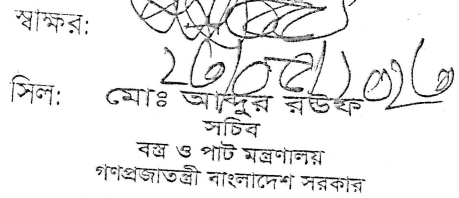 স্বাক্ষর:
সিল: মোঃ আব্দুর রউফ
সচিব
বস্ত্র ও পাট মন্ত্রণালয়
গণপ্রজাতন্ত্রী বাংলাদেশ সরকার